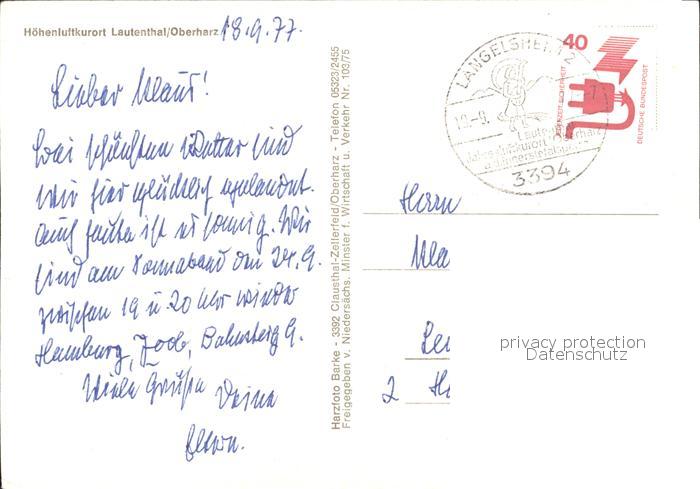 Höhenluftkurort Lautenthal/Oberharz
18.9.77.
Lieber Klaus!
Bei schönstem Wetter sind
wir hier glücklich gelandet.
Auch heute ist es sonnig. Wir
sind am Sonnabend den 24.9.
zwischen 19 u 20 Uhr wieder
Hamburg, Zoob, Bahnsteig 9.
Viele Grüße Deine
Eltern.
Harzfoto Barke - 3392 Clausthal-Zellerfeld/Oberharz - Telefon 05323/2455
Freigegeben v. Niedersächs. Minster f. Wirtschaft u. Verkehr Nr. 103/75
LANGELSHEIM 2
18.-9.
Lautenthal Oberharz
Höhenluftkurort
3394
40
JEDERZEIT SICHERHEIT
DEUTSCHE BUNDESPOST
Herrn
Kla
2 H
privacy protection
Datenschutz